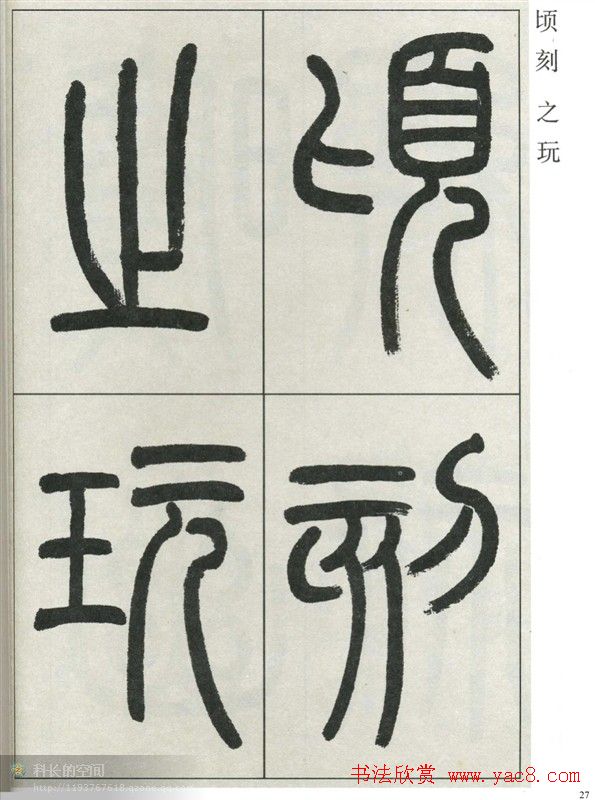 顷刻 之玩
頃
刻
之
玩
科长的空间
http://1193767618.qzone.qq.com
书法欣赏 www.yac8.com
27